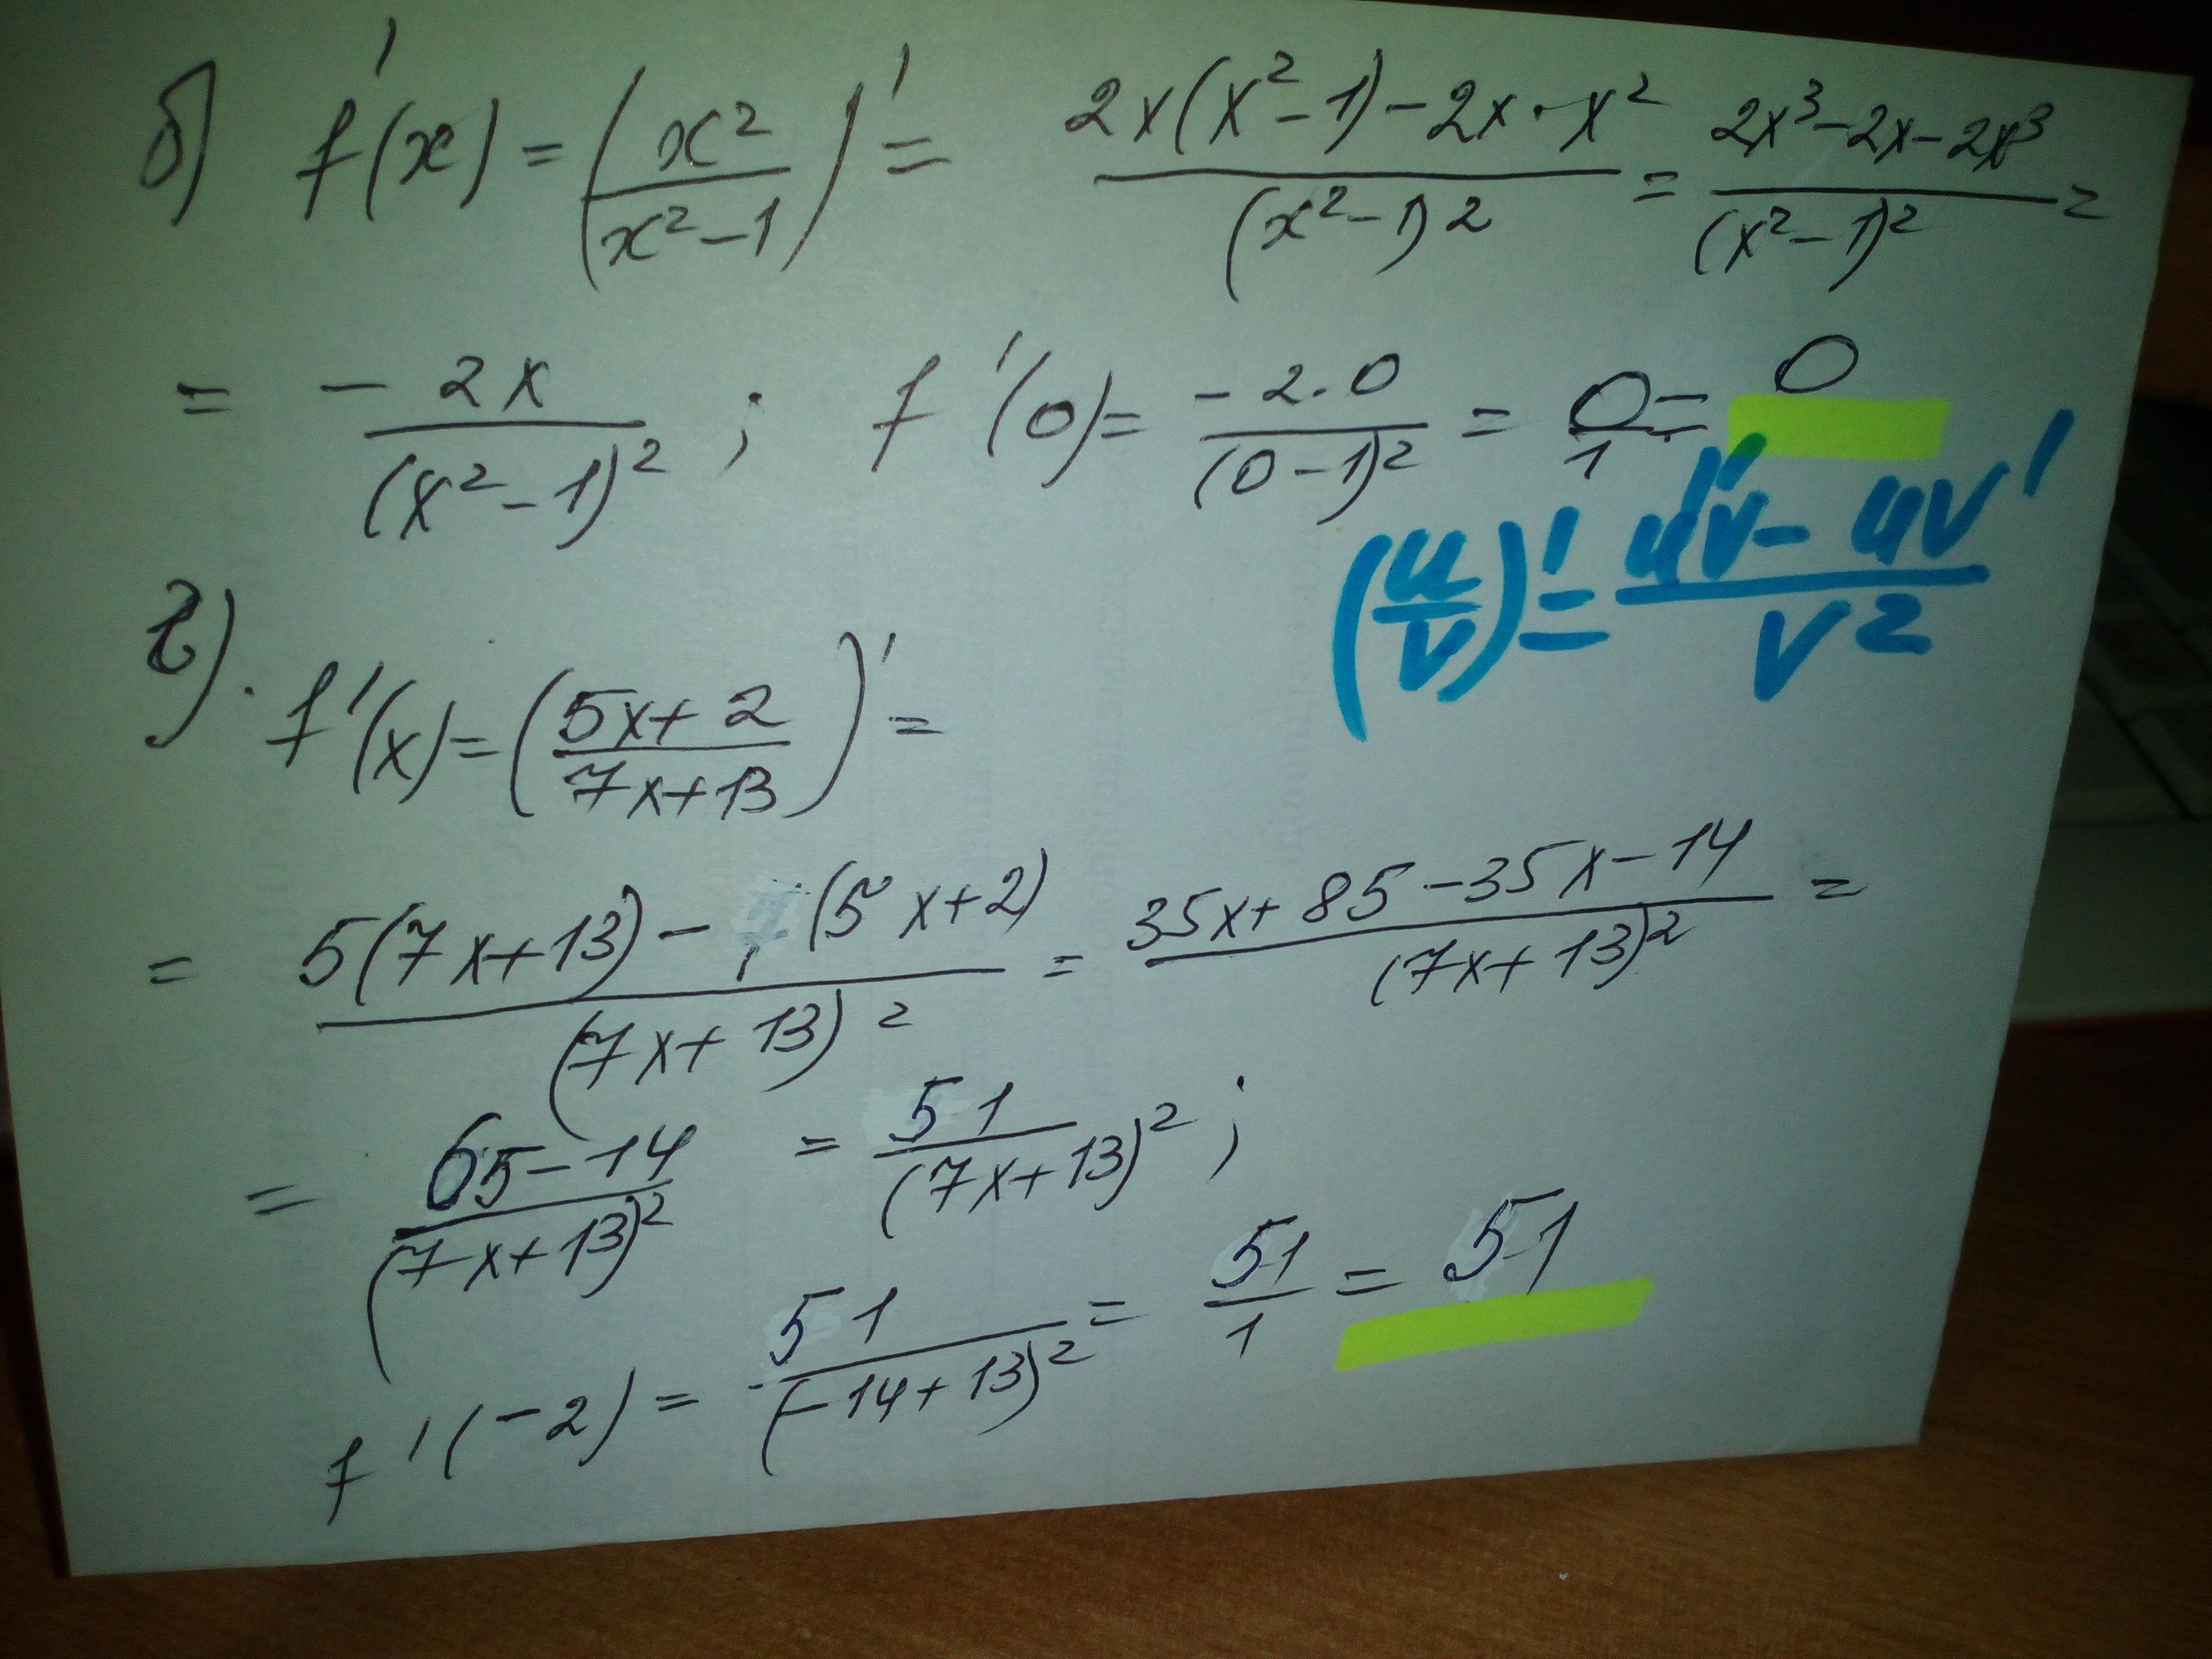 б) f'(x) = (x²/(x²-1))' = (2x(x²-1)-2x·x²)/(x²-1)² = (2x³-2x-2x³)/(x²-1)² =
= -2x/(x²-1)² ; f'(0) = (-2·0)/(0-1)² = 0/1 = 0
(u/v)' = (u'v - uv')/v²
г). f'(x) = ((5x+2)/(7x+13))' =
= (5(7x+13) - 7(5x+2))/(7x+13)² = (35x+85-35x-14)/(7x+13)² =
= (65-14)/(7x+13)² = 51/(7x+13)² ;
f'(-2) = 51/(-14+13)² = 51/1 = 51